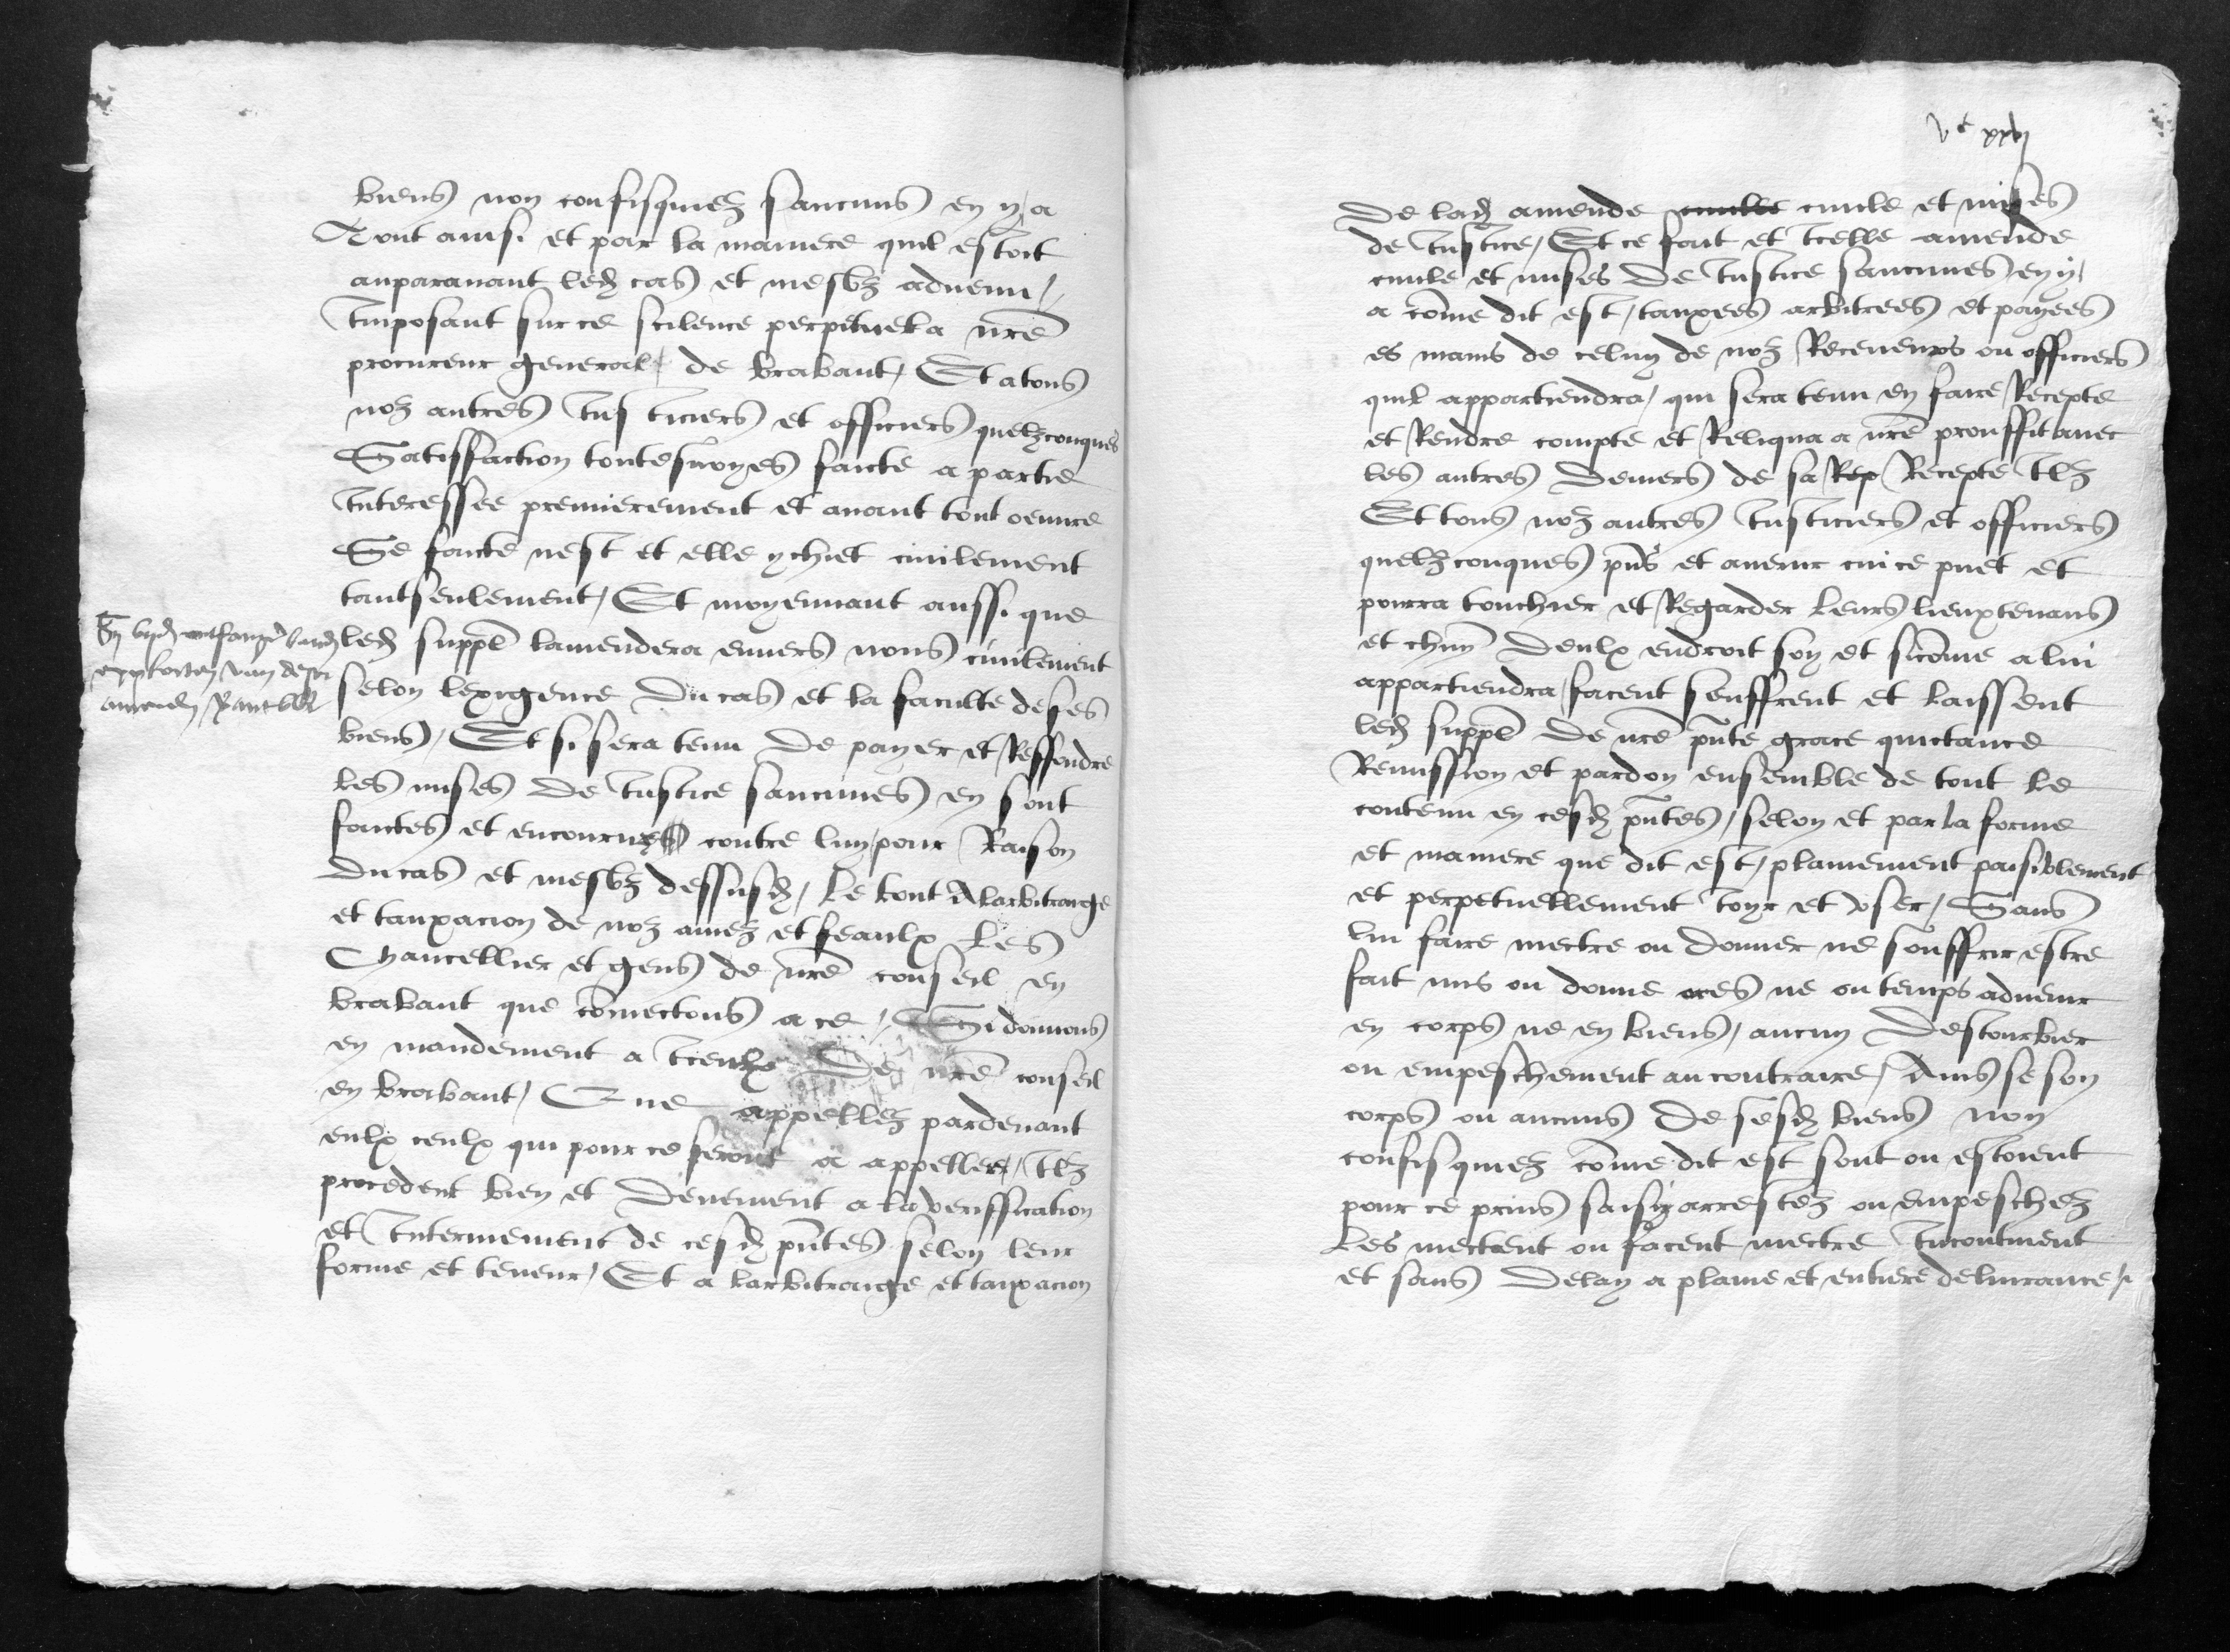 biens non confisquiez saucuns en y a
Tout ainsi et par la maniere quil estoit
auparauant led cas et mesuz aduenu /
Imposant sur ce scilence perpetuel a nre
procureur general de brabant / Et a tous
noz autres Justiciers et officiers quelzconques
Satisffaction touteuoyes faicte a partie
Interessee premierement et auant tout oeuure
Se faicte nest et elle y chiet ciuilement
tantseulement / Et moyennant aussi que
led suppl lamendera enuers nous ciuilement
selon lexigence du cas et la faculte de ses
biens / Et si sera tenu de payer et Reffondre
les mises de Justice saucunes en sont
faictes et encourues contre luy pour Raison
du cas et mesuz dessusd / le tout A larbitraige
et tauxacion de noz amez et feaulx les
Chancellier et gens de nre conseil en
brabant que cōmectons a ce / Si donnons
en mandement a Iceulx de nre conseil
en brabant / Que appellez pardeuant
eulx ceulx qui pour ce seront a appeller / Ilz
procedent bien et deuement a la veriffication
et Interinement de cesd pntes selon leur
forme et teneur / Et a larbitraige et tauxacion
vᶜ xxvj
de lad amende ciuille ciuile et mises
de Justice / Et ce fait et Icelle amende
ciuile et mises de Justice saucunes en y
a cōme dit est / tauxees arbitrees et payees
es mains de celuy de noz Receueurs ou officiers
quil appartiendra / qui sera tenu en faire Recepte
et Rendre compte et Reliqua a nre prouffit auec
les autres deniers de sa Rep Recepte Ilz
Et tous noz autres Justiciers et officiers
quelzconques pns et auenir cui ce puet et
pourra touchier et Regarder leurs lieuxtenans
et chun deulx endroit soy et sicōme a lui
appartiendra / facent seuffrent et laissent
led suppl de nre pnte grace quictance
Remission et pardon ensemble de tout le
contenu en cesd pntes / selon et par la forme
et maniere que dit est / plainement paisiblement
et perpetuellement Joyr et vser / Sans
lui faire mectre ou donner ne souffrir estre
fait mis ou donne ores ne ou temps aduenir
en corps ne en biens / aucun destourbier
ou empeschement au contraire / Ains se son
corps ou aucuns de sesd biens non
confisquiez cōme dit est sont ou estoient
pour ce prins saisiz arrestez ou empeschez
les mectent ou facent mectre Incontinent
et sans delay a plaine et entiere deliurance /